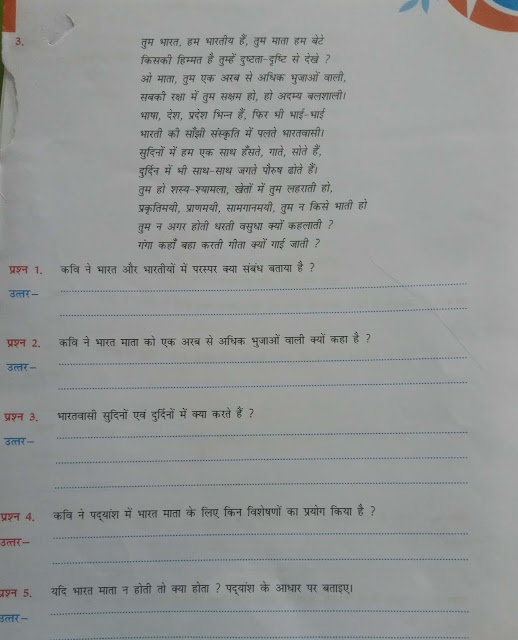 3. तुम भारत, हम भारतीय हैं, तुम माता हम बेटे
किसकी हिम्मत है तुम्हें दुष्टता-दृष्टि से देखे ?
ओ माता, तुम एक अरब से अधिक भुजाओं वाली,
सबकी रक्षा में तुम सक्षम हो, हो अदम्य बलशाली।
भाषा, देश, प्रदेश भिन्न हैं, फिर भी भाई-भाई
भारती की साँझी संस्कृति में पलते भारतवासी।
सुदिनों में हम एक साथ हँसते, गाते, सोते हैं,
दुर्दिन में भी साथ-साथ जगते पौरुष ढोते हैं।
तुम हो शस्य-श्यामला, खेतों में तुम लहराती हो,
प्रकृतिमयी, प्राणमयी, सामगानमयी, तुम न किसे भाती हो
तुम न अगर होती धरती वसुधा क्यों कहलाती ?
गंगा कहाँ बहा करती गीता क्यों गाई जाती ?
प्रश्न 1. कवि ने भारत और भारतीयों में परस्पर क्या संबंध बताया है ?
उत्तर–
प्रश्न 2. कवि ने भारत माता को एक अरब से अधिक भुजाओं वाली क्यों कहा है ?
उत्तर–
प्रश्न 3. भारतवासी सुदिनों एवं दुर्दिनों में क्या करते हैं ?
उत्तर–
प्रश्न 4. कवि ने पद्यांश में भारत माता के लिए किन विशेषणों का प्रयोग किया है ?
उत्तर–
प्रश्न 5. यदि भारत माता न होती तो क्या होता ? पद्यांश के आधार पर बताइए।
उत्तर–